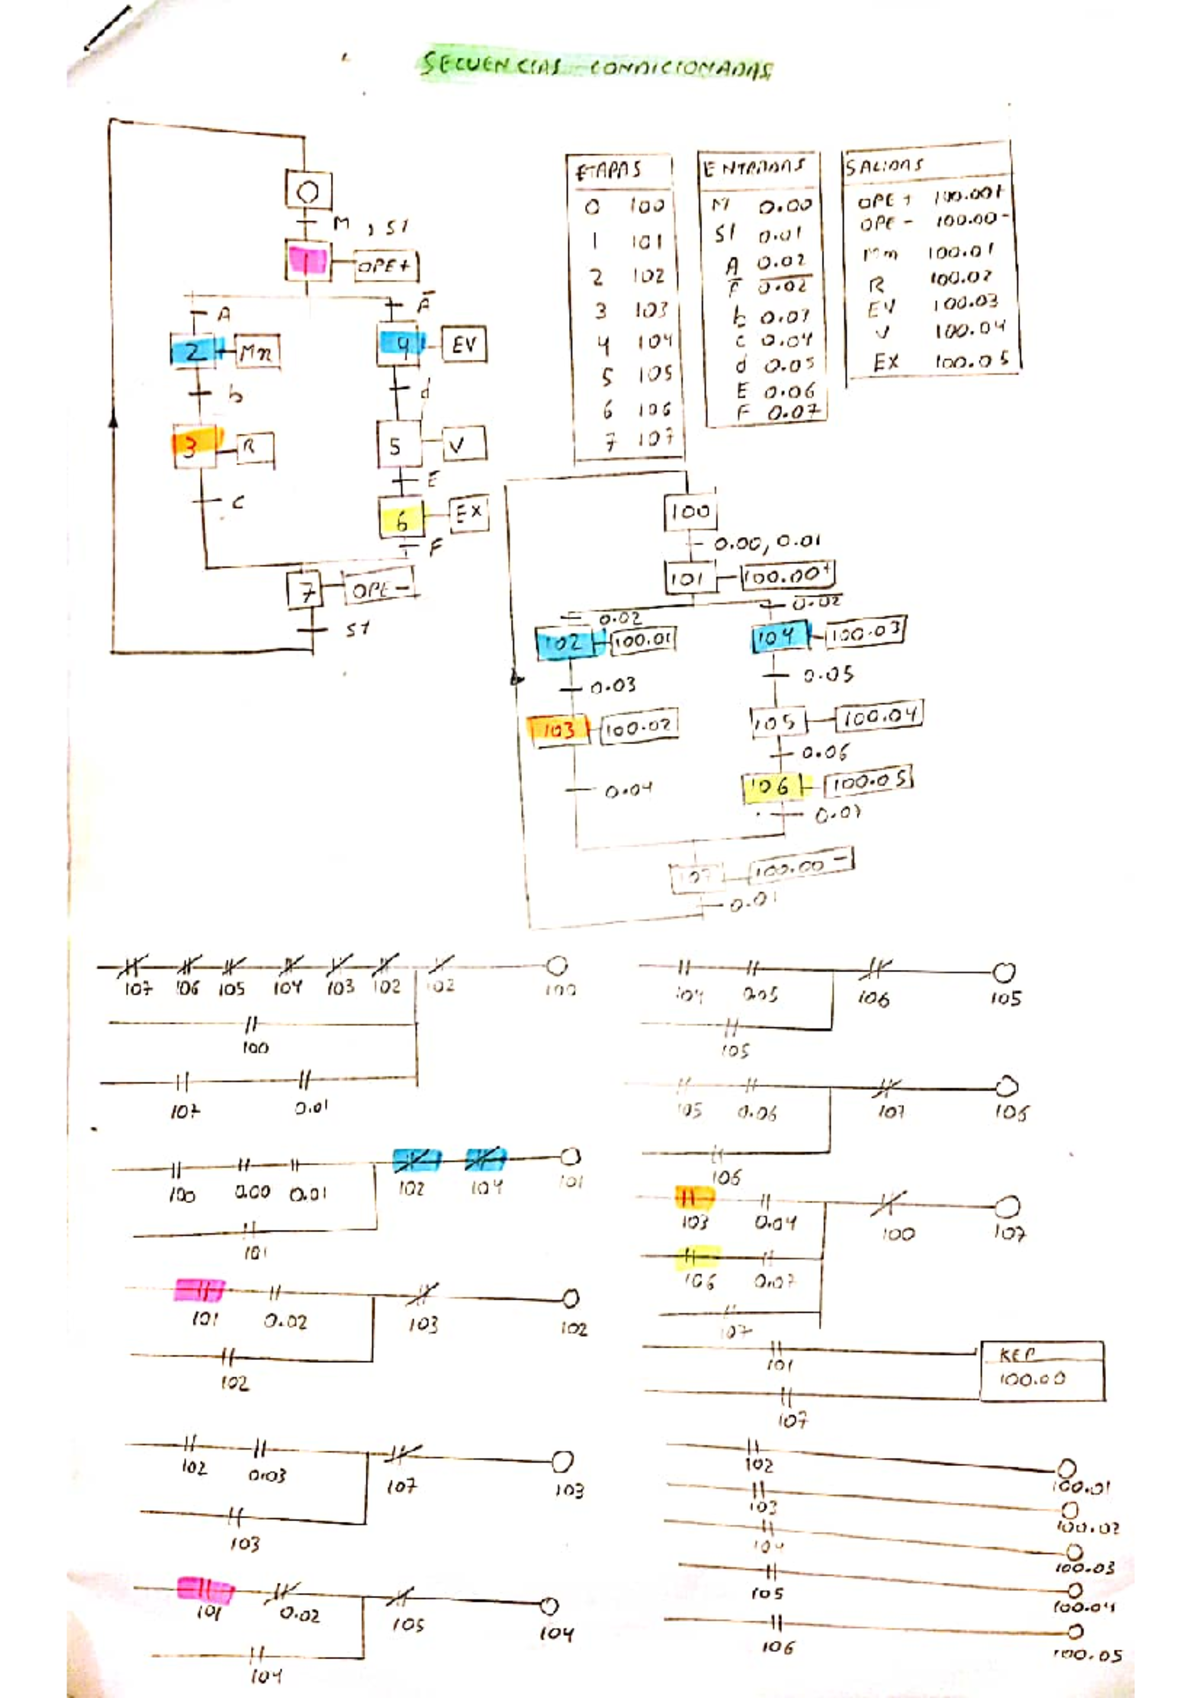 SECUENCIAS CONDICIONADAS
0
M , S1
1 OPE+
A
Ā
2 Mm
4 EV
b
d
3 R
5 V
c
E
6 EX
F
7 OPE-
S1
ETAPAS
0 100
1 101
2 102
3 103
4 104
5 105
6 106
7 107
ENTRADAS
M 0.00
S1 0.01
A 0.02
0.02
b 0.03
c 0.04
d 0.05
E 0.06
F 0.07
SALIDAS
OPE + 100.00+
OPE - 100.00-
Mm 100.01
R 100.02
EV 100.03
V 100.04
EX 100.05
100
0.00, 0.01
101 100.00+
0.02
0.02
102 100.01
104 100.03
0.03
0.05
103 100.02
105 100.04
0.06
0.04
106 100.05
0.07
107 100.00-
0.01
107 106 105 104 103 102 102 100
100
107 0.01
100 0.00 0.01 102 104 101
101
101 0.02 103 102
102
102 0.03 107 103
103
101 0.02 105 104
104
104 0.05 106 105
105
105 0.06 107 106
106
103 0.04 100 107
106 0.07
107
101
KEP
100.00
107
102
100.01
103
100.02
104
100.03
105
100.04
106
100.05